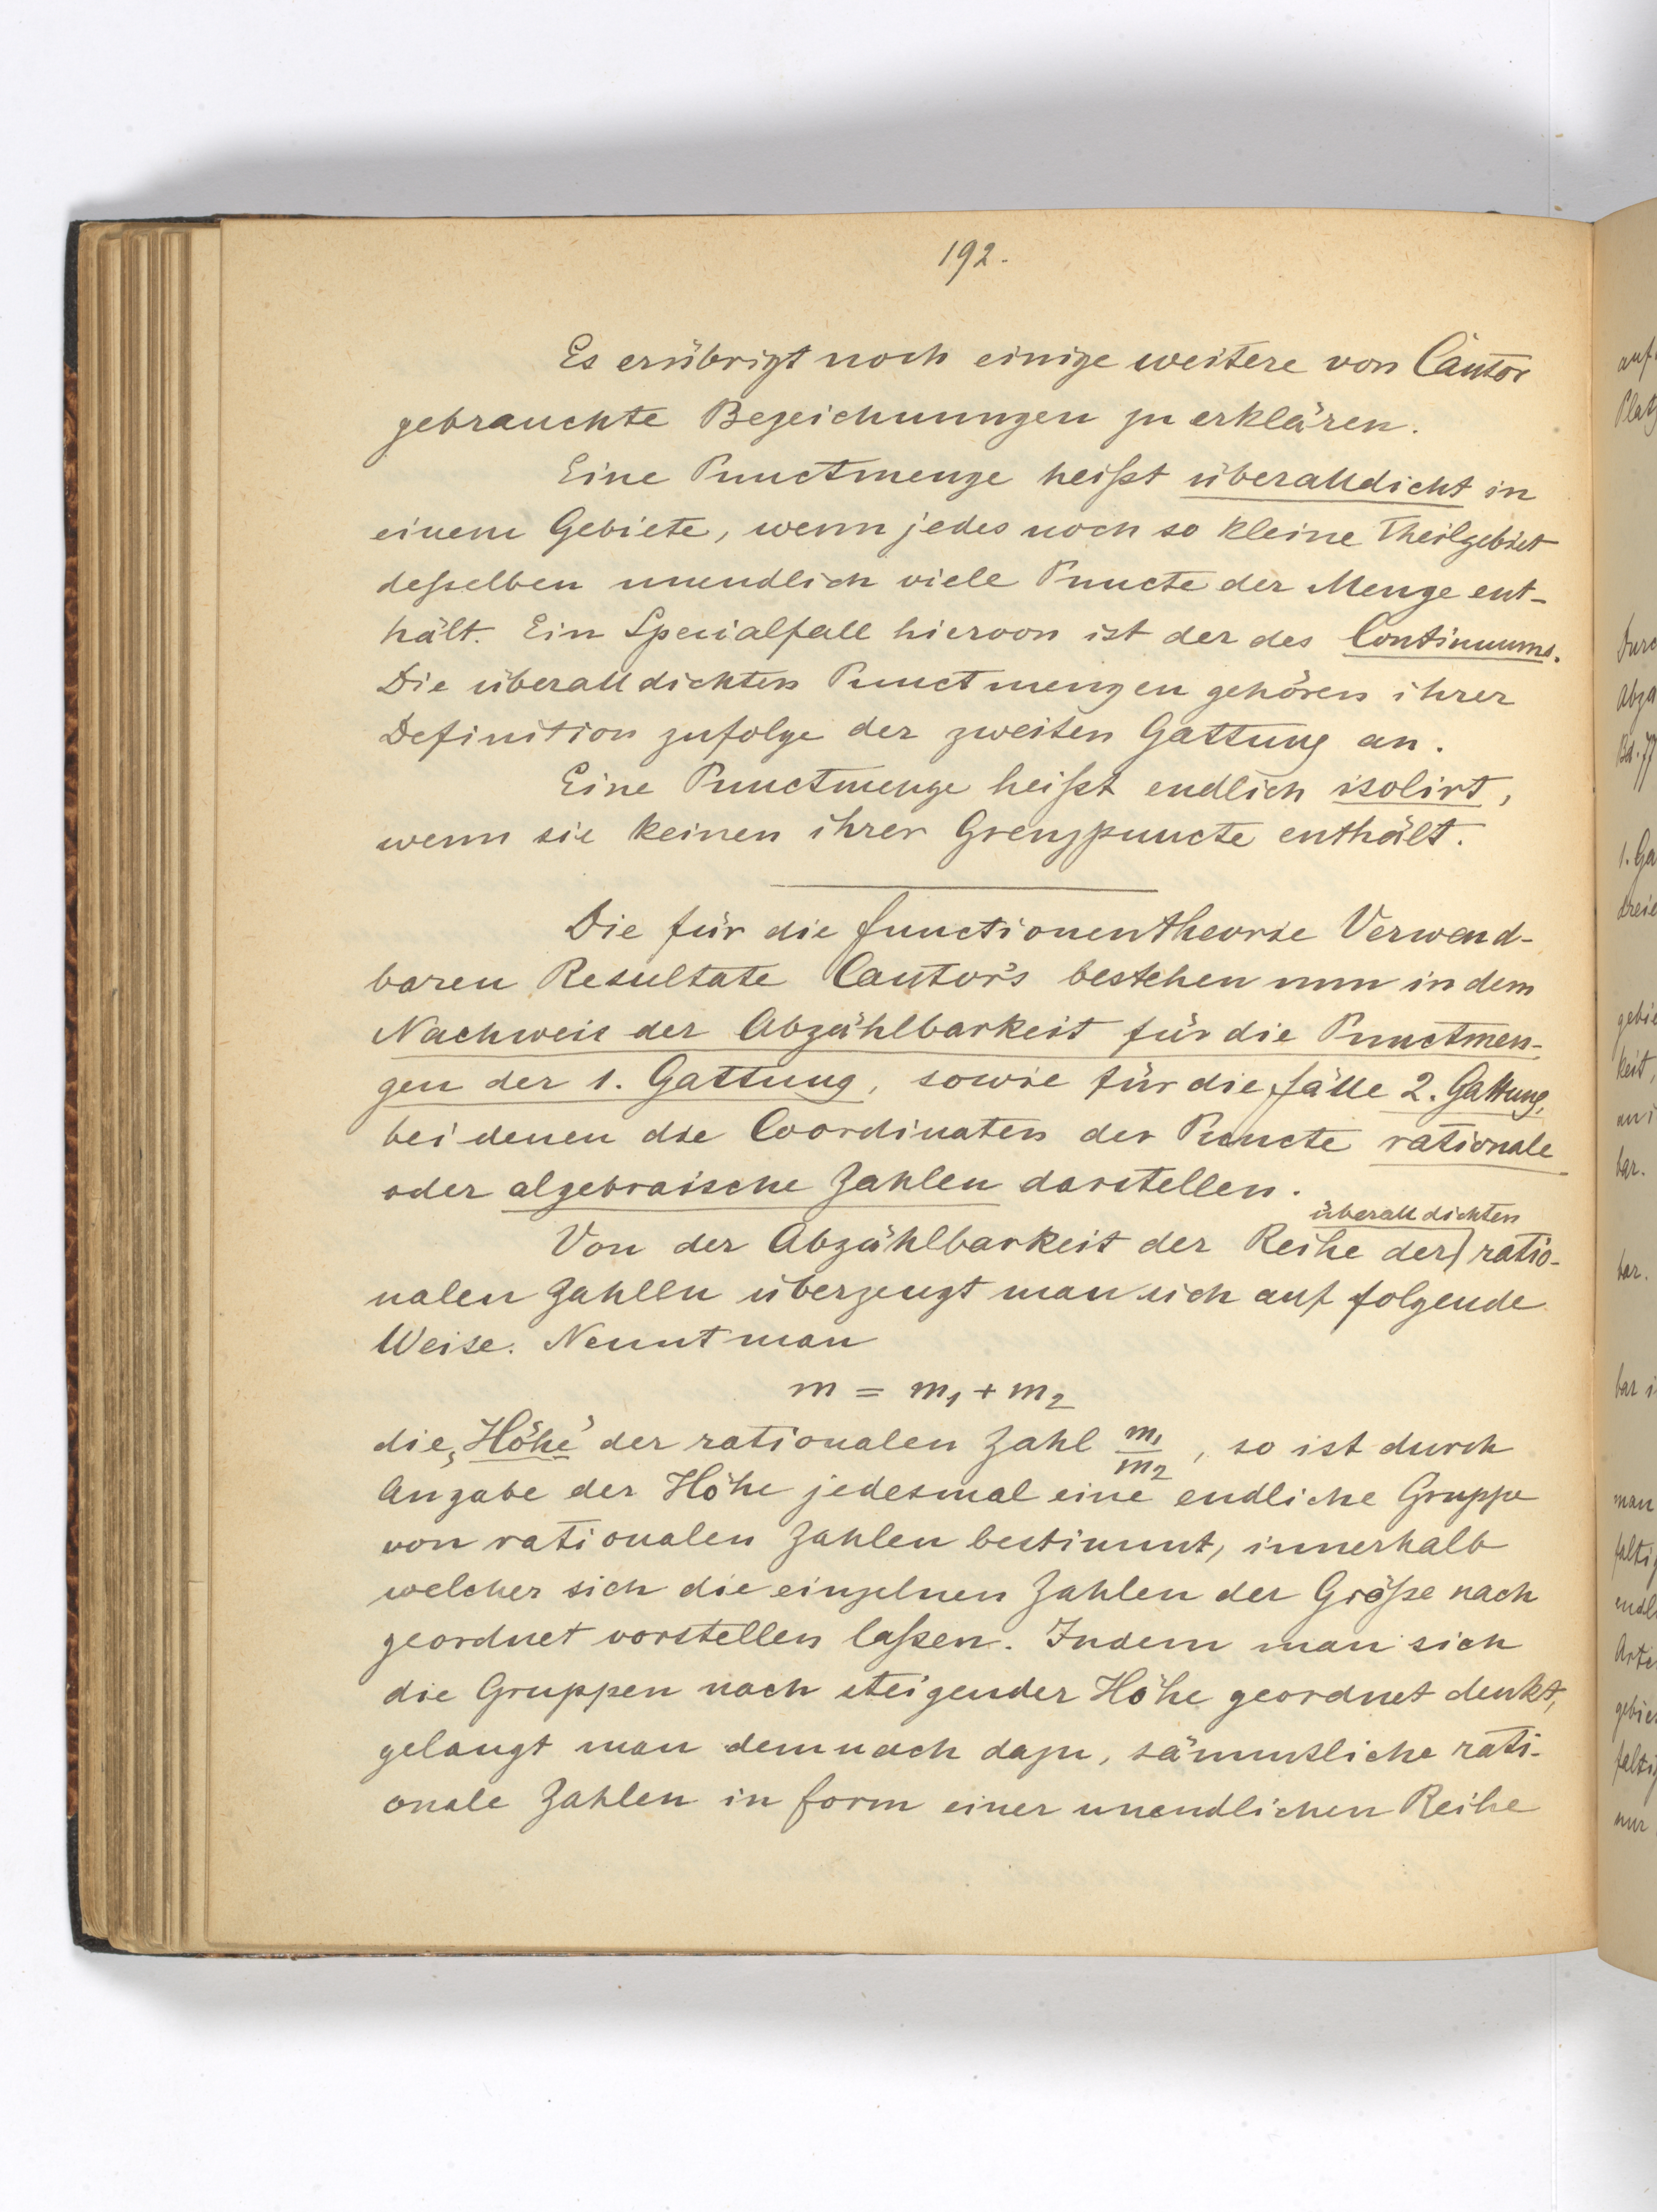 192.
Es erübrigt noch einige weitere von Cantor
gebrauchte Bezeichnungen zu erklären.
Eine Punctmenge heißt überalldicht in
einem Gebiete, wenn jedes noch so kleine Theilgebiet
deßelben unendlich viele Puncte der Menge ent-
hält. Ein Specialfall hiervon ist der des Continuums.
Die überalldichten Punctmengen gehören ihrer
Definition zufolge der zweiten Gattung an.
Eine Punctmenge heißt endlich isolirt,
wenn sie keinen ihrer Grenzpuncte enthält.
Die für die Functionentheorie Verwend-
baren Resultate Cantor's bestehen nun in dem
Nachweis der Abzählbarkeit für die Punctmen-
gen der 1. Gattung, sowie für die Fälle 2. Gattung,
bei denen die Coordinaten der Puncte rationale
oder algebraische Zahlen darstellen.
überalldichten
Von der Abzählbarkeit der Reihe der) ratio-
nalen Zahlen überzeugt man sich auf folgende
Weise. Nennt man
m = m₁ + m₂
die „Höhe" der rationalen Zahl m₁/m₂, so ist durch
Angabe der Höhe jedesmal eine endliche Gruppe
von rationalen Zahlen bestimmt, innerhalb
welcher sich die einzelnen Zahlen der Größe nach
geordnet vorstellen laßen. Indem man sich
die Gruppen nach steigender Höhe geordnet denkt,
gelangt man demnach dazu, sämmtliche rati-
onale Zahlen in Form einer unendlichen Reihe